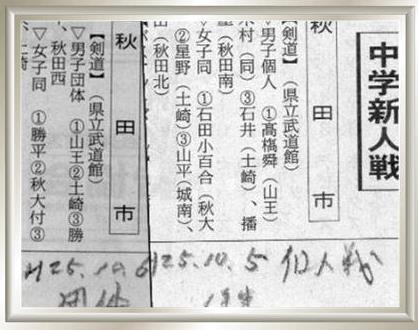 中学新人戦
秋田市
【剣道】（県立武道館）
▽男子個人　①髙橋舜（山王）
村（同）③石井（土崎）、播
（秋田南）
▽女子同　①石田小百合（秋大
②星野（土崎）③山平（城南）、
（秋田北）
秋田市
【剣道】（県立武道館）
▽男子団体　①山王②土崎③勝
、秋田西
▽女子同　①勝平②秋大付③
、土崎
H25.10.6
25.10.5 個人戦
団体